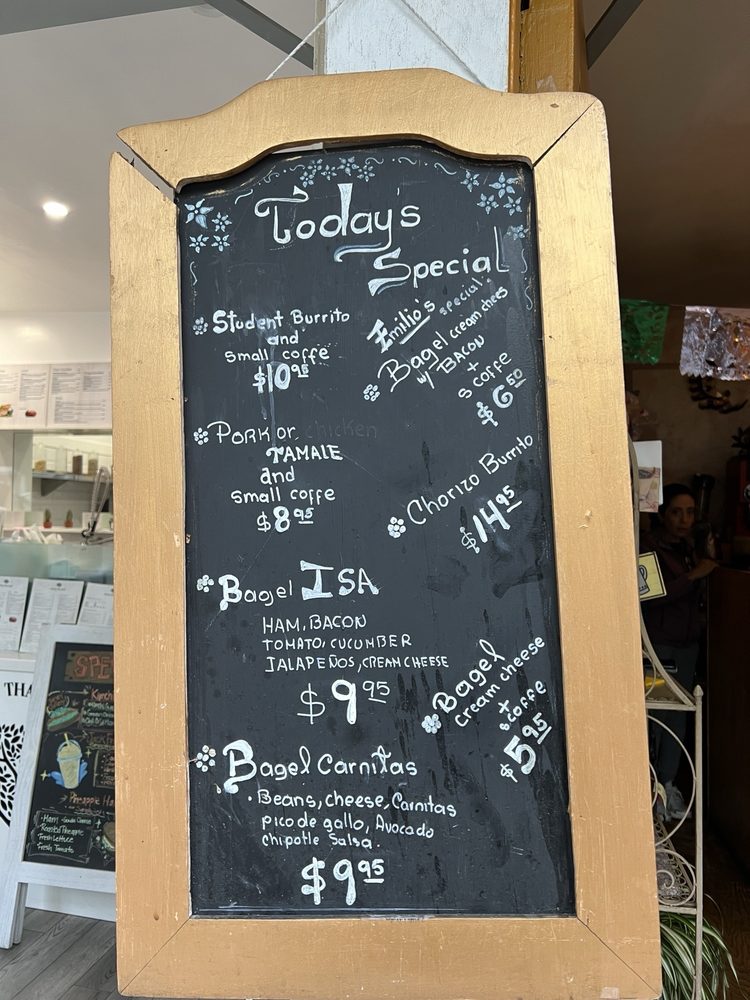 Today's
Special
Student Burrito
and
small coffe
$10.95
Pork or chicken
TAMALE
and
small coffe
$8.95
Bagel ISA
HAM, BACON
TOMATO, CUCUMBER
JALAPEÑOS, CREAM CHEESE
$9.95
Bagel Carnitas
· Beans, cheese, Carnitas
pico de gallo, Avocado
chipotle Salsa.
$9.95
Emilio's special:
Bagel cream chees
w/ BACON
+
s coffe
$6.50
Chorizo Burrito
$14.95
Bagel
cream cheese
+
s coffe
$5.95
THA
SPE
Pineapple Ha
Ham
Roasted Pineapple
Fresh Lettuce
Fresh Tomato